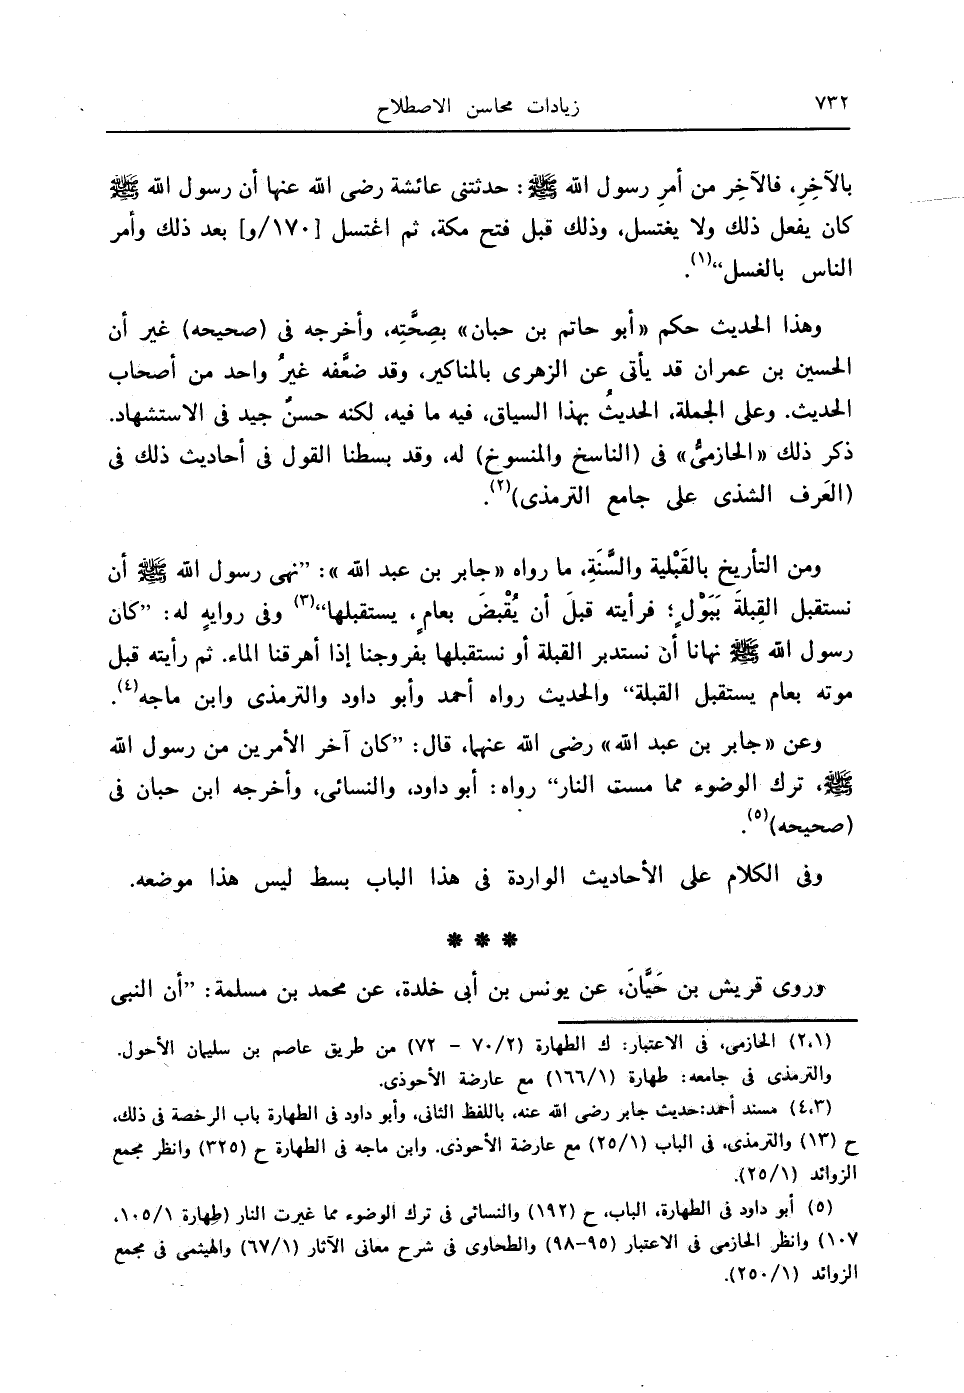 ٧٣٢
زيادات محاسن الاصطلاح
بالآخِرِ، فالآخِر من أمرِ رسول الله ﷺ: حدثتنى عائشة رضى الله عنها أن رسول الله ﷺ
كان يفعل ذلك ولا يغتسل، وذلك قبل فتح مكة، ثم اغتسل [١٧٠/و] بعد ذلك وأمر
الناس بالغسل“(١).
وهذا الحديث حكم «أبو حاتم بن حبان» بصِحَّتِه، وأخرجه فى (صحيحه) غير أن
الحسين بن عمران قد يأتى عن الزهرى بالمناكير، وقد ضعَّفه غيرُ واحد من أصحاب
الحديث. وعلى الجملة، الحديثُ بهذا السياق، فيه ما فيه، لكنه حسنٌ جيد فى الاستشهاد.
ذكر ذلك «الحازمىُّ» فى (الناسخ والمنسوخ) له، وقد بسطنا القول فى أحاديث ذلك فى
(العَرف الشذى على جامع الترمذى)(٢).
ومن التأريخ بالقَبْلية والسَّنَةِ، ما رواه «جابر بن عبد الله»: ”نهى رسول الله ﷺ أن
نستقبل القِبلةَ بَبَوْلٍ؛ فرأيته قبلَ أن يُقْبضَ بعامٍ، يستقبلها“(٣) وفى روايهٍ له: ”كان
رسول الله ﷺ نهانا أن نستدبر القبلة أو نستقبلها بفروجنا إذا أهرقنا الماء. ثم رأيته قبل
موته بعام يستقبل القبلة“ والحديث رواه أحمد وأبو داود والترمذى وابن ماجه(٤).
وعن «جابر بن عبد الله» رضى الله عنهما، قال: ”كان آخر الأمرين من رسول الله
ﷺ، ترك الوضوء مما مست النار“ رواه: أبو داود، والنسائى، وأخرجه ابن حبان فى
(صحيحه)(٥).
وفى الكلام على الأحاديث الواردة فى هذا الباب بسط ليس هذا موضعه.
* * *
وروى قريش بن حَيَّانَ، عن يونس بن أبى خلدة، عن محمد بن مسلمة: ”أن النبى
(٢،١) الحازمى، فى الاعتبار: ك الطهارة (٧٠/٢ - ٧٢) من طريق عاصم بن سليمان الأحول.
والترمذى فى جامعه: طهارة (١٦٦/١) مع عارضة الأحوذى.
(٤،٣) مسند أحمد:حديث جابر رضى الله عنه، باللفظ الثانى، وأبو داود فى الطهارة باب الرخصة فى ذلك،
ح (١٣) والترمذى، فى الباب (٢٥/١) مع عارضة الأحوذى. وابن ماجه فى الطهارة ح (٣٢٥) وانظر مجمع
الزوائد (٢٥/١).
(٥) أبو داود فى الطهارة، الباب، ح (١٩٢) والنسائى فى ترك الوضوء مما غيرت النار (طهارة ١٠٥/١،
١٠٧) وانظر الحازمى فى الاعتبار (٩٥-٩٨) والطحاوى فى شرح معانى الآثار (٦٧/١) والهيثمى فى مجمع
الزوائد (٢٥٠/١).